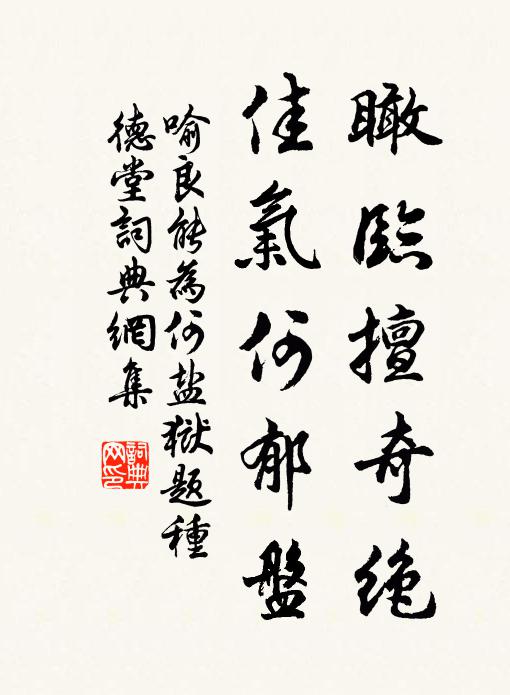 瞰臨擅奇絶
佳氣何郁盤
喻良能為何盐獄題種
德堂詞典網集
詞典网印